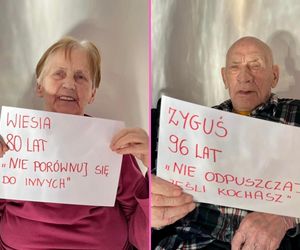 WIESIA
80 LAT
„NIE PORÓWNUJ SIĘ
DO INNYCH"
ZYGUŚ
96 LAT
„NIE ODPUSZCZAJ
JEŚLI KOCHASZ"